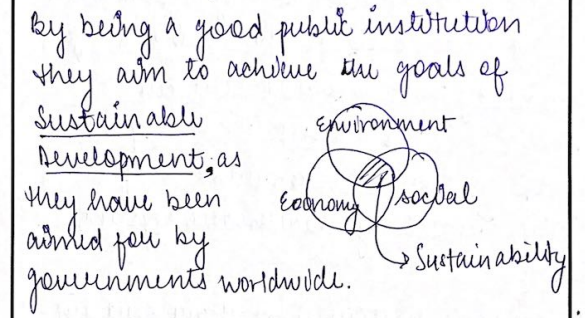 By being a good public institution
they aim to achieve the goals of
Sustainable
Development, as
they have been
aimed for by
governments worldwide.
Environment
Economy
social
Sustainability